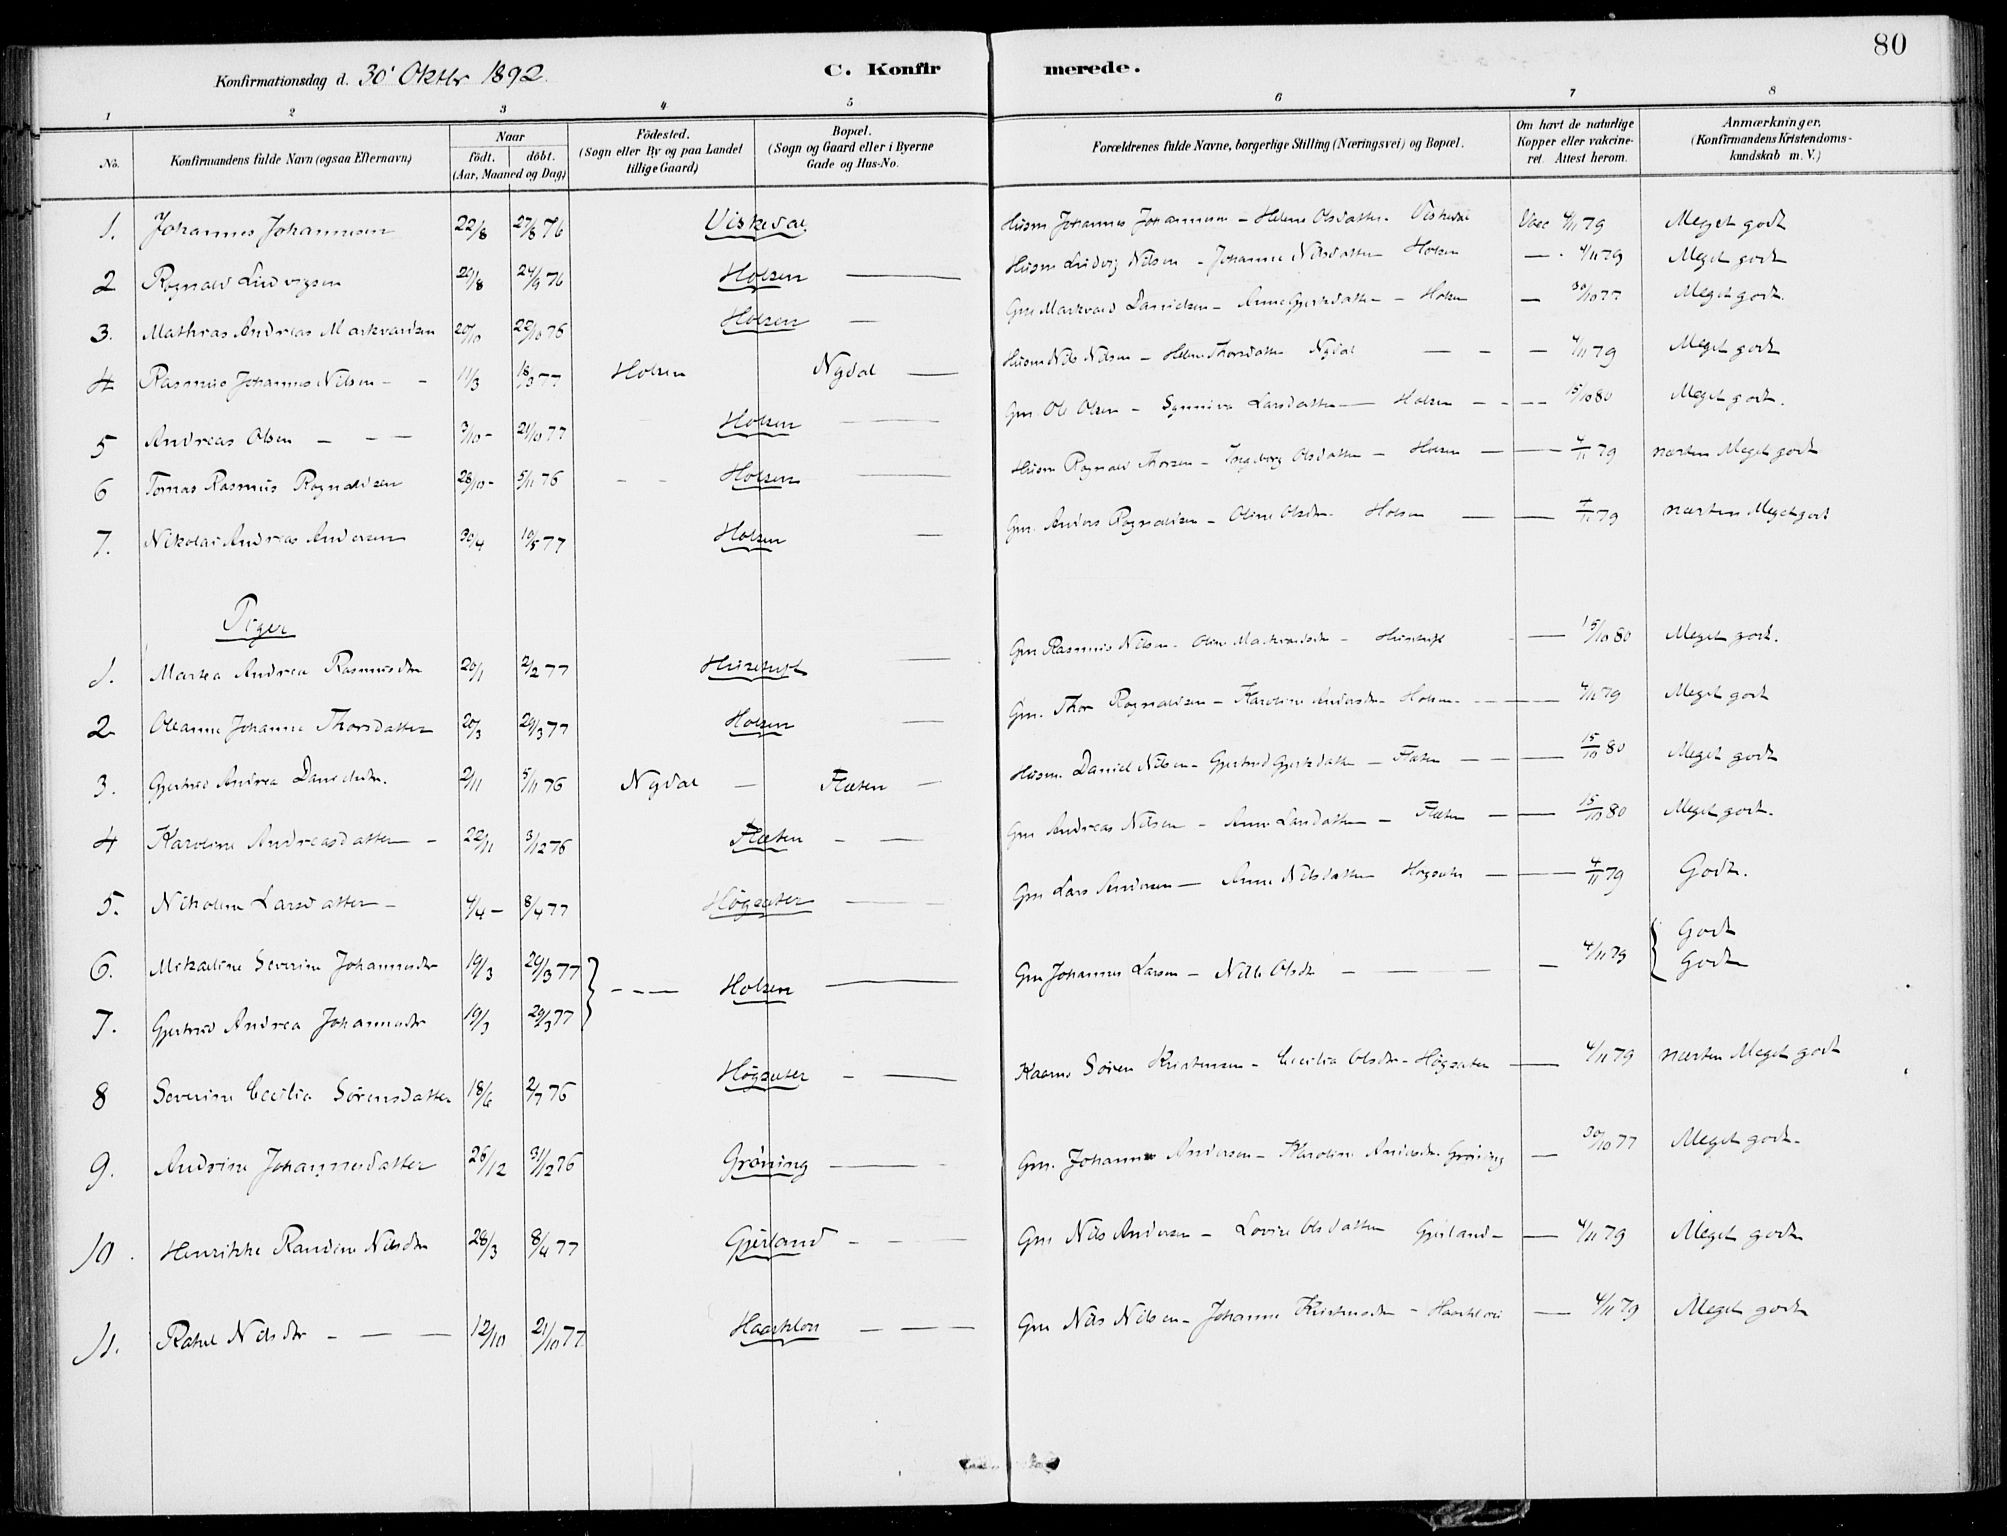 80
Konfirmationsdag d. 30' Oktbr 1892. C. Konfirmerede.
1 2 3 4 5 6 7 8
No. Konfirmandens fulde Navn (ogsaa Efternavn) Naar födt. döbt. (Aar, Maaned og Dag) Födested. (Sogn eller By og paa Landet tillige Gaard) Bopæl. (Sogn og Gaard eller i Byerne Gade og Hus-No. Forældrenes fulde Navne, borgerlige Stilling (Næringsvei) og Bopæl. Om havt de naturlige Kopper eller vakcineret. Attest herom. Anmærkninger. (Konfirmandens Kristendomskundskab m. V.)
1. Johannes Johannesen 22/8 27/8 76 Viskedal Husm Johannes Johannesen - Helene Olsdatter. Viskedal Vacc 4/11 79 Meget godt
2 Rognald Ludvigsen 24/9 76 Holsen — Husm Ludvig Nilsen - Johanne Nilsdatter Holsen — . 4/11 79 Meget godt
3. Mathias Andreas Markvardsen 20/10 22/10 76 Holsen — Grm Markvard Danielsen - Anne Gjertsdatter - Holsen — 30/10 77 Meget godt.
4 Rasmus Johannes Nilsen - - 11/3 18/3 77 Holsen Nydal — Husm Nils Nilsen - Helene Thorsdatter Nydal — - — 4/11 79 Meget godt
5 Andreas Olsen — - — 7/10 - 21/10 77 Holsen — Grm. Ole Olsen - Synneva Larsdatter — Holsen - - — 15/10 80 Meget godt.
6 Tomas Rasmus Rognaldsen 28/10 - 5/11 76 - - Holsen — Husm Rognald Thorsen - Ingeborg Olsdatter - Holsen — — 4/11 79 næsten Meget godt
7. Nikolai Andreas Andersen 30/4 10/5 77 Holsen — Grm. Anders Rognaldsen - Oline Olsdtr. Holsen — — 4/11 79 næsten Meget godt
Piger
1. Martea Andrea Rasmusdtr 20/1 2/2 77 — Grm Rasmus Nilsen - Oline Markvardsdtr - - — 15/10 80 Meget godt.
2 Oleanne Johanne Thorsdatter 20/3 29/3 77 Holsen — Grm. Thor Rognaldsen - Karoline Andersdtr Holsen - - — 4/11 79 Meget godt
3. Gjertrud Andrea Danielsdtr. 2/11 5/11 76 Nydal — Flæten — Husm. Daniel Nilsen - Gjertrud Gjertsdatter - Flæten — - — 15/10 80 Meget godt
4 Karoline Andreasdatter - 22/11 3/12 76 Flæten - — Grm Andreas Nilsen - Anne Larsdatter - Flæten — — 15/10 80 Meget godt.
5. Nikoline Larsdatter - 4/4 - 8/4 77 Høgsæter — Grm Lars Andersen - Anne Nilsdatter Høgsæter — — 4/11 79 Godt.
6. Mikaeline Severine Johannesdtr 19/3 29/3 77 } - - — Holsen — Grm Johannes Larsen - Nille Olsdtr - — — — 4/11 79 { Godt
7. Gjertrud Andrea Johannesdtr 19/3 29/3 77 Godt
8 Severine Cecilia Sörensdatter 18/6 2/7 76 Høgsæter - — Kaarm Sören Kristensen - Cecilia Olsdtr - Høgsæter — 4/11 79 næsten Meget godt
9. Andrine Johannesdatter 26/12 31/12 76 Gröning — Grm. Johannes Andersen - Karoline Andersdtr. Gröning — 30/10 77 Meget godt.
10. Henrikke Randine Nilsdtr 28/3 8/4 77 Gjerland - - — Grm Nils Andersen - Lovise Olsdatter Gjerland - — 4/11 79 Meget godt
11. Rakel Nilsdtr - — — 12/10 21/10 77 Haarklou — — — Grm Nils Nilsen - Johanne - Haarklou — 4/11 79 Meget godt